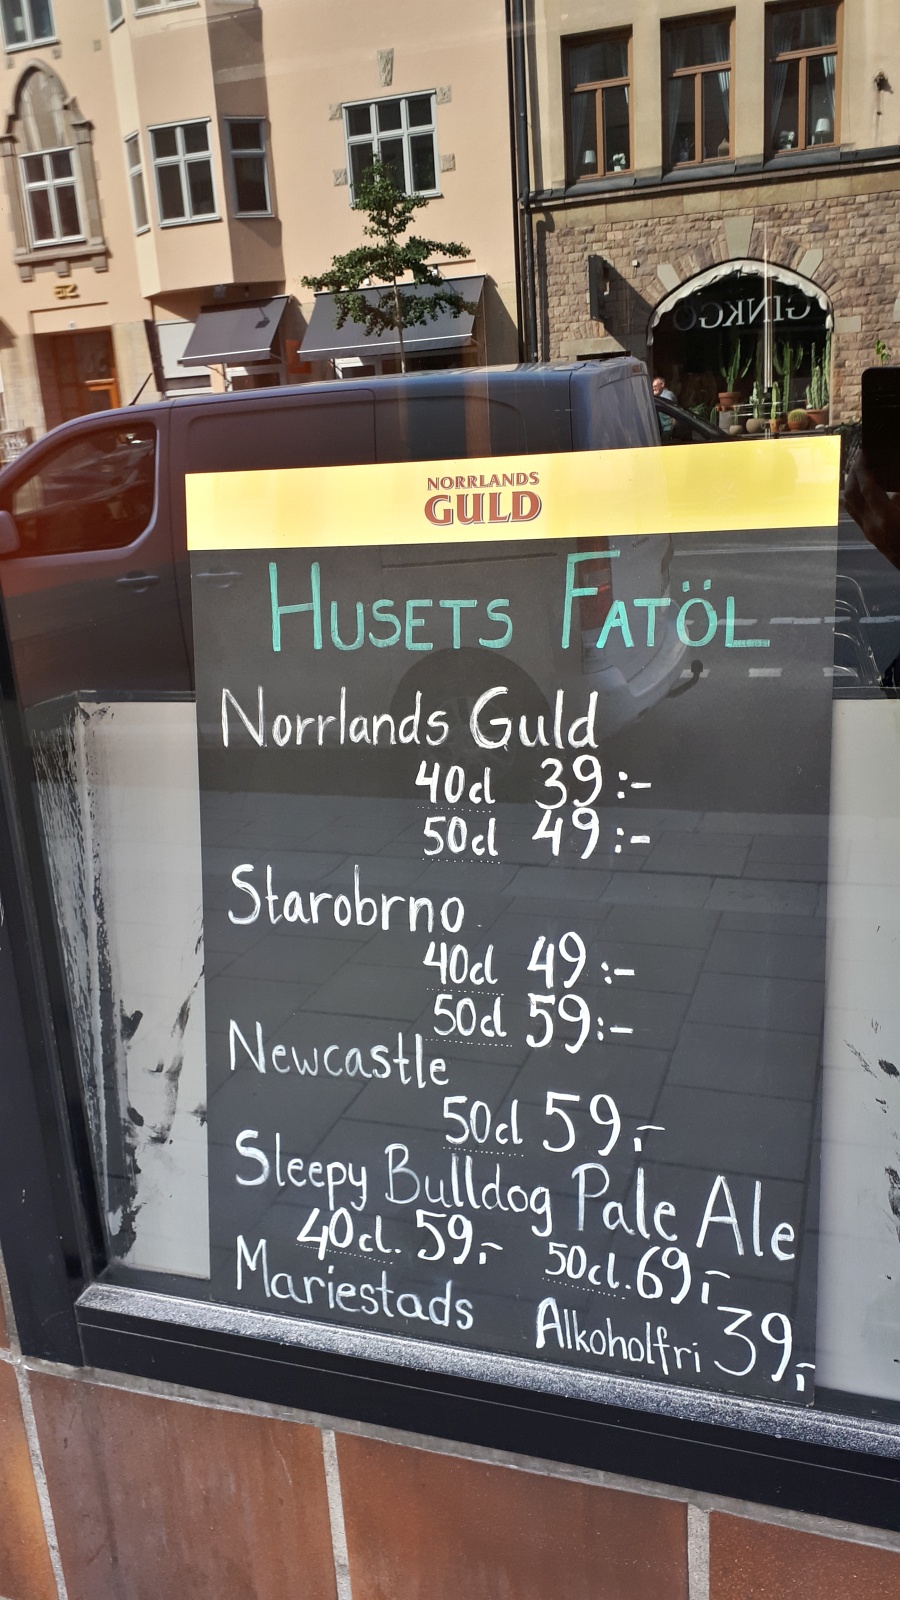 GINKGO
NORRLANDS
GULD
HUSETS FATÖL
Norrlands Guld
40cl 39:-
50cl 49:-
Starobrno
40cl 49:-
50cl 59:-
Newcastle
50cl 59,-
Sleepy Bulldog Pale Ale
40cl. 59,- 50cl. 69,-
Mariestads Alkoholfri 39,-